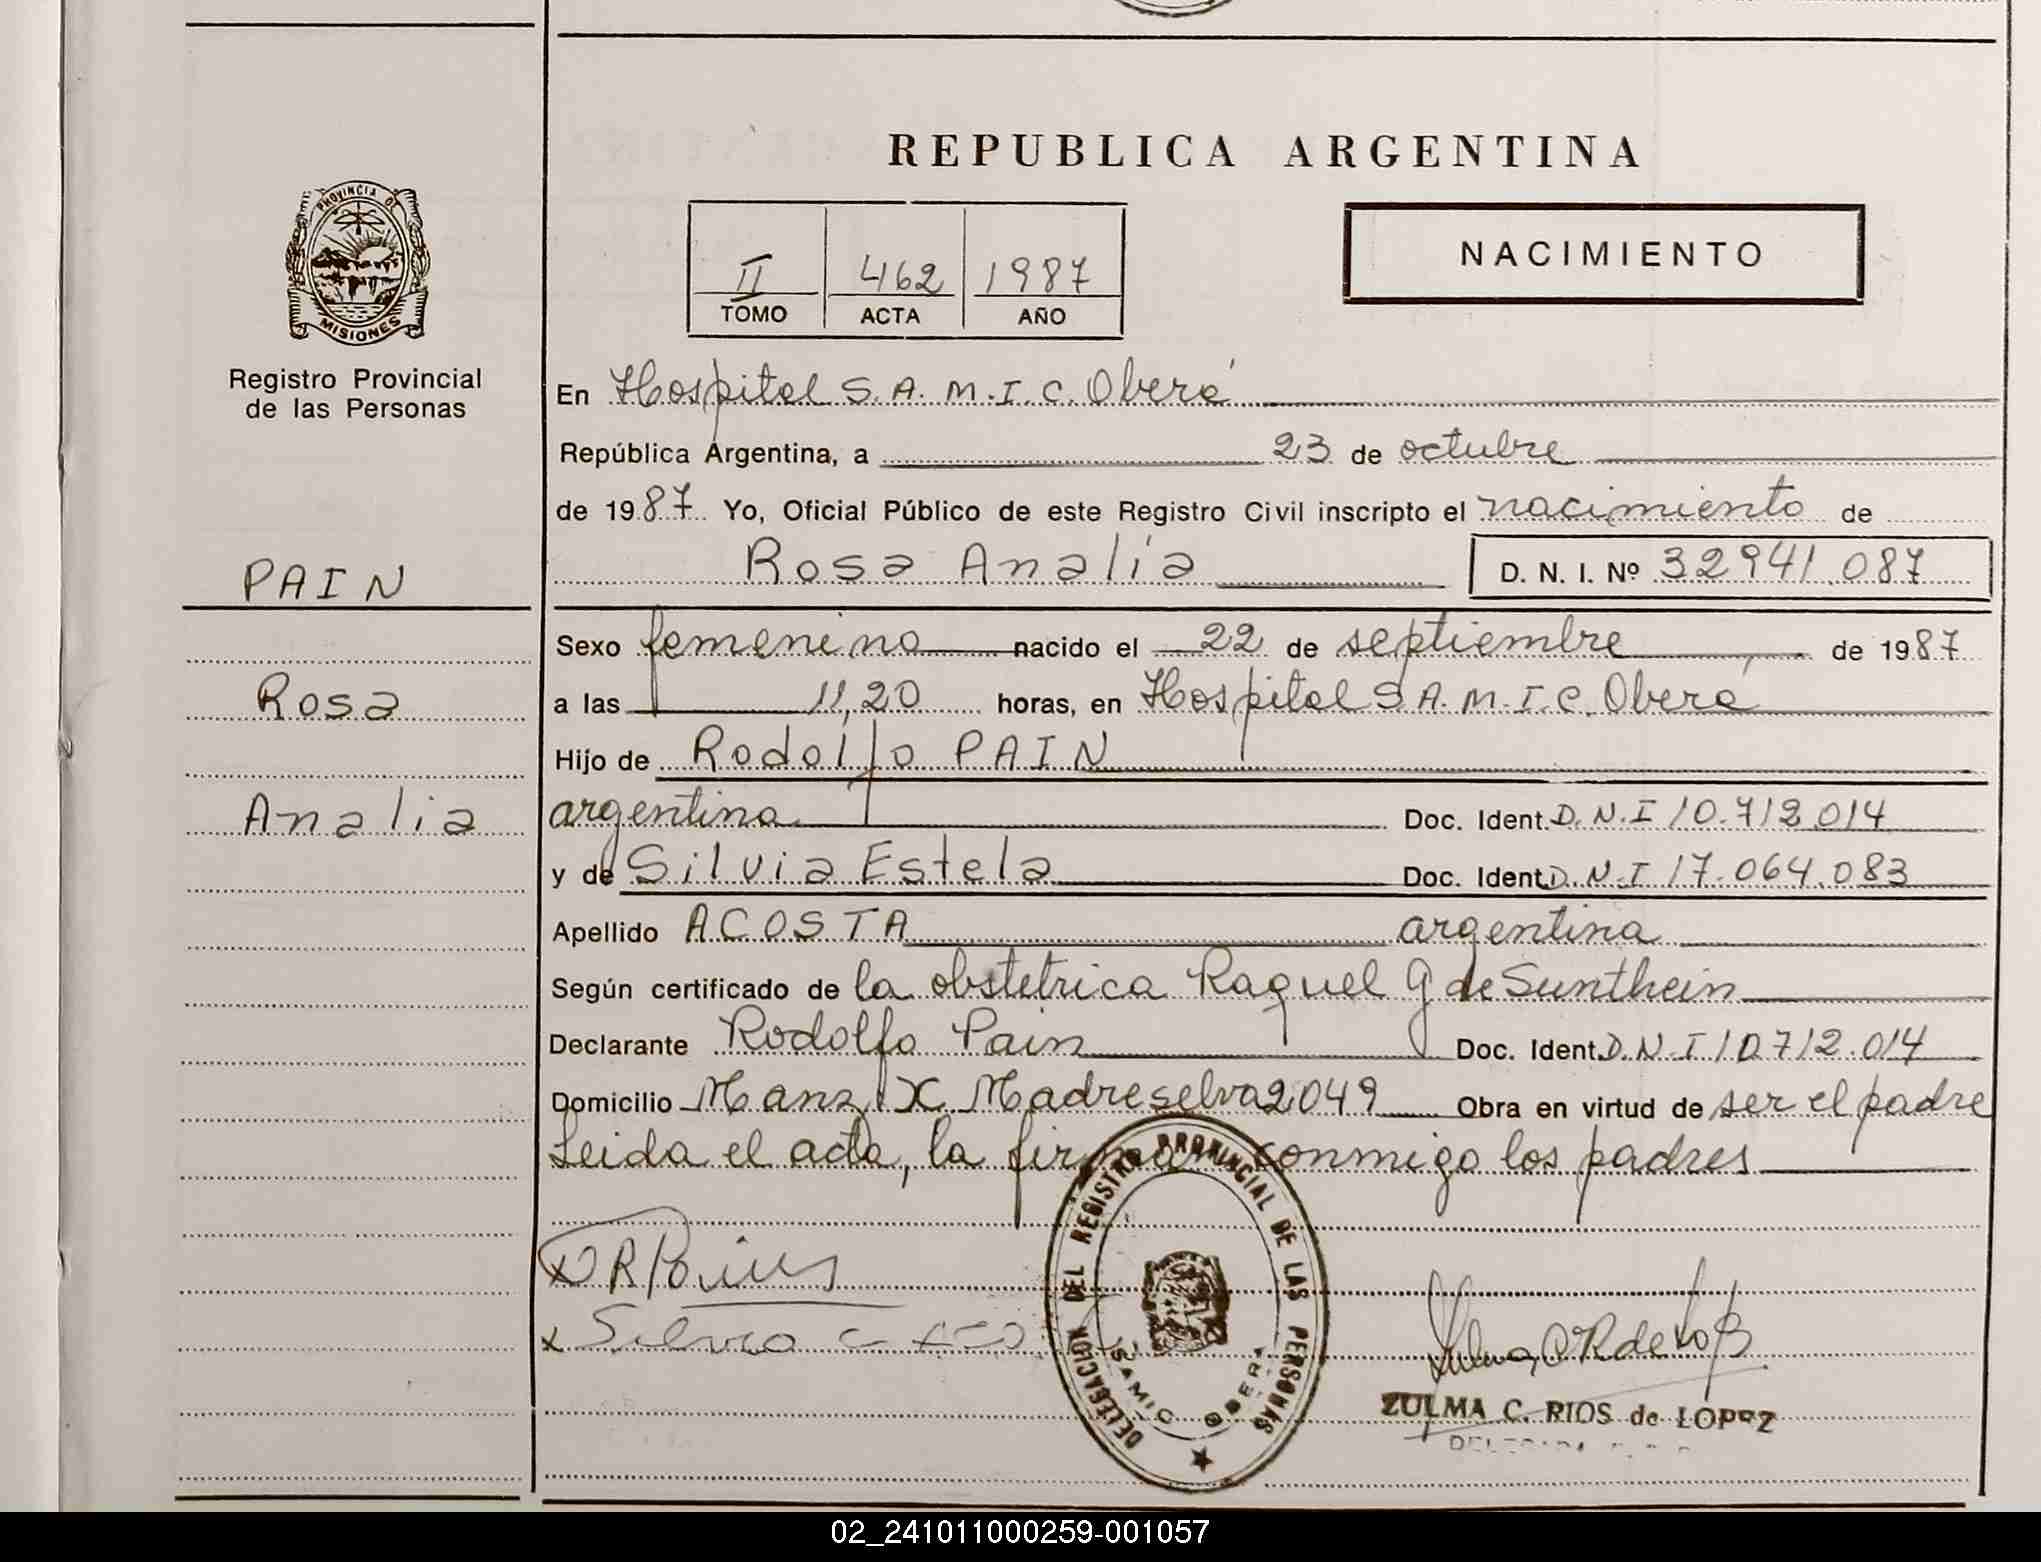 REPUBLICA ARGENTINA
PROVINCIA DE
MISIONES
Registro Provincial
de las Personas
II 462 1987
TOMO ACTA AÑO
NACIMIENTO
En Hospital S.A.M.I.C. Oberá
República Argentina, a 23 de octubre
de 1987 Yo, Oficial Público de este Registro Civil inscripto el nacimiento de
Rosa Analía D. N. I. Nº 32941.087
PAIN
Rosa
Analia
Sexo femenino nacido el 22 de septiembre de 1987
a las 11,20 horas, en Hospital S.A.M.I.C. Oberá
Hijo de Rodolfo PAIN
argentina Doc. Ident. D.N.I 10.712.014
y de Silvia Estela Doc. Ident. D.N.I 17.064.083
Apellido ACOSTA argentina
Según certificado de la obstetrica Raquel G de Sunthein
Declarante Rodolfo Pain Doc. Ident. D.N.I 10712.014
Domicilio Manz X Madreselva 2049 Obra en virtud de ser el padre
Leida el acta, la firman conmigo los padres
DELEGACION DEL REGISTRO PROVINCIAL DE LAS PERSONAS
SAMIC OBERA
Silvia
ZULMA C. RIOS de LOPEZ
02_241011000259-001057